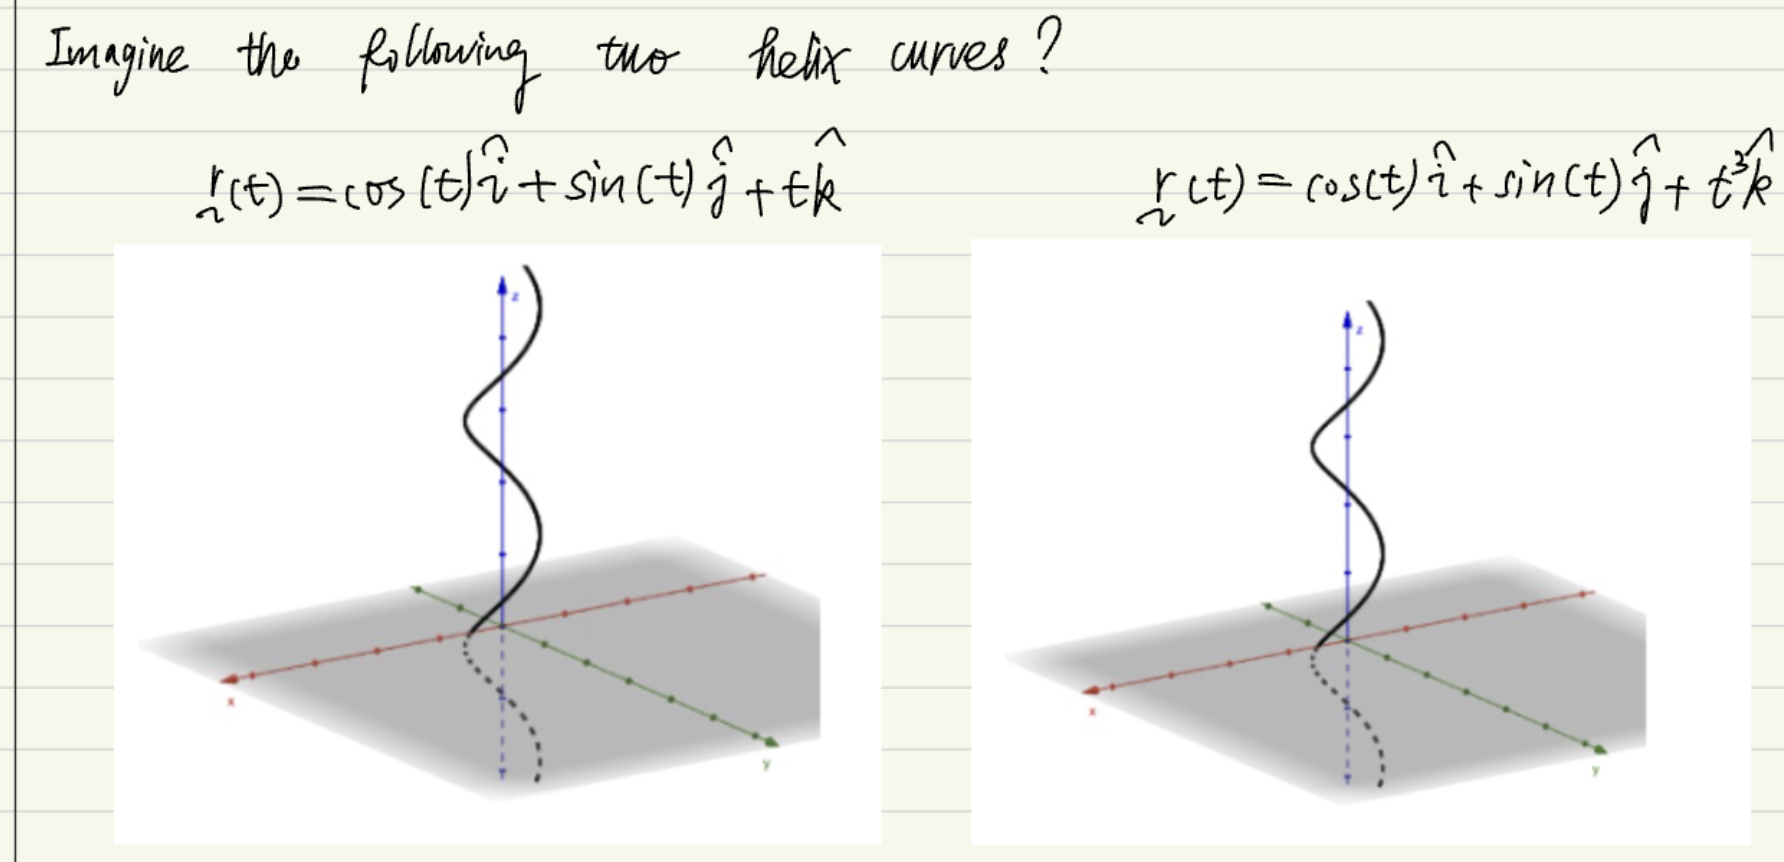 Imagine the following two helix curves?
r̰(t) = cos(t)î + sin(t)ĵ + tk̂
r̰(t) = cos(t)î + sin(t)ĵ + t³k̂
z
x
y
z
x
y